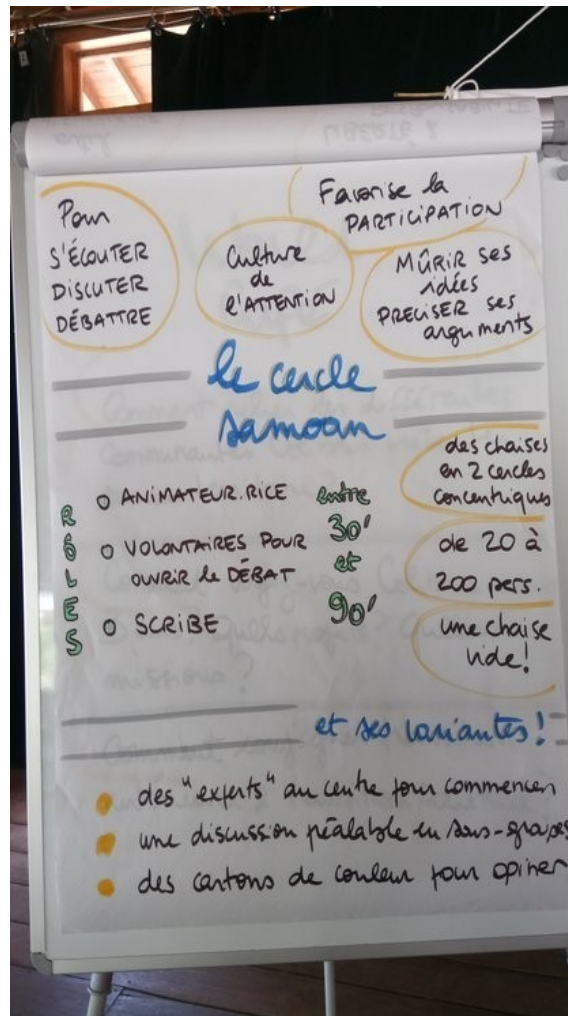 Pour
S'ÉCOUTER
DISCUTER
DÉBATTRE
Culture
de
l'ATTENTION
Favorise la
PARTICIPATION
MÛRIR ses
idées
PRECISER ses
arguments
le cercle
samoan
RÔLES
o ANIMATEUR.RICE
o VOLONTAIRES POUR
OUVRIR le DÉBAT
o SCRIBE
entre
30'
et
90'
des chaises
en 2 cercles
concentriques
de 20 à
200 pers.
une chaise
vide!
et ses variantes!
des "experts" au centre pour commencer
une discussion préalable en sous-groupes
des cartons de couleur pour opiner